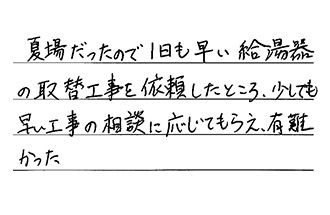 夏場だったので1日も早い給湯器
の取替工事を依頼したところ、少しでも
早い工事の相談に応じてもらえ、有難
かった